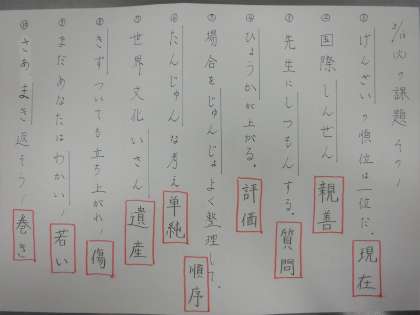 2/1(火)の課題 その1
① げんざいの順位は一位だ。 現在
② 国際しんぜん 親善
③ 先生にしつもんする。 質問
④ ひょうかが上がる。 評価
⑤ 場合をじゅんじょよく整理して。 順序
⑥ たんじゅんな考え 単純
⑦ 世界文化いさん 遺産
⑧ きずついても立ち上がれ! 傷
⑨ まだあなたはわかい! 若い
⑩ さあ、まき返そう! 巻き